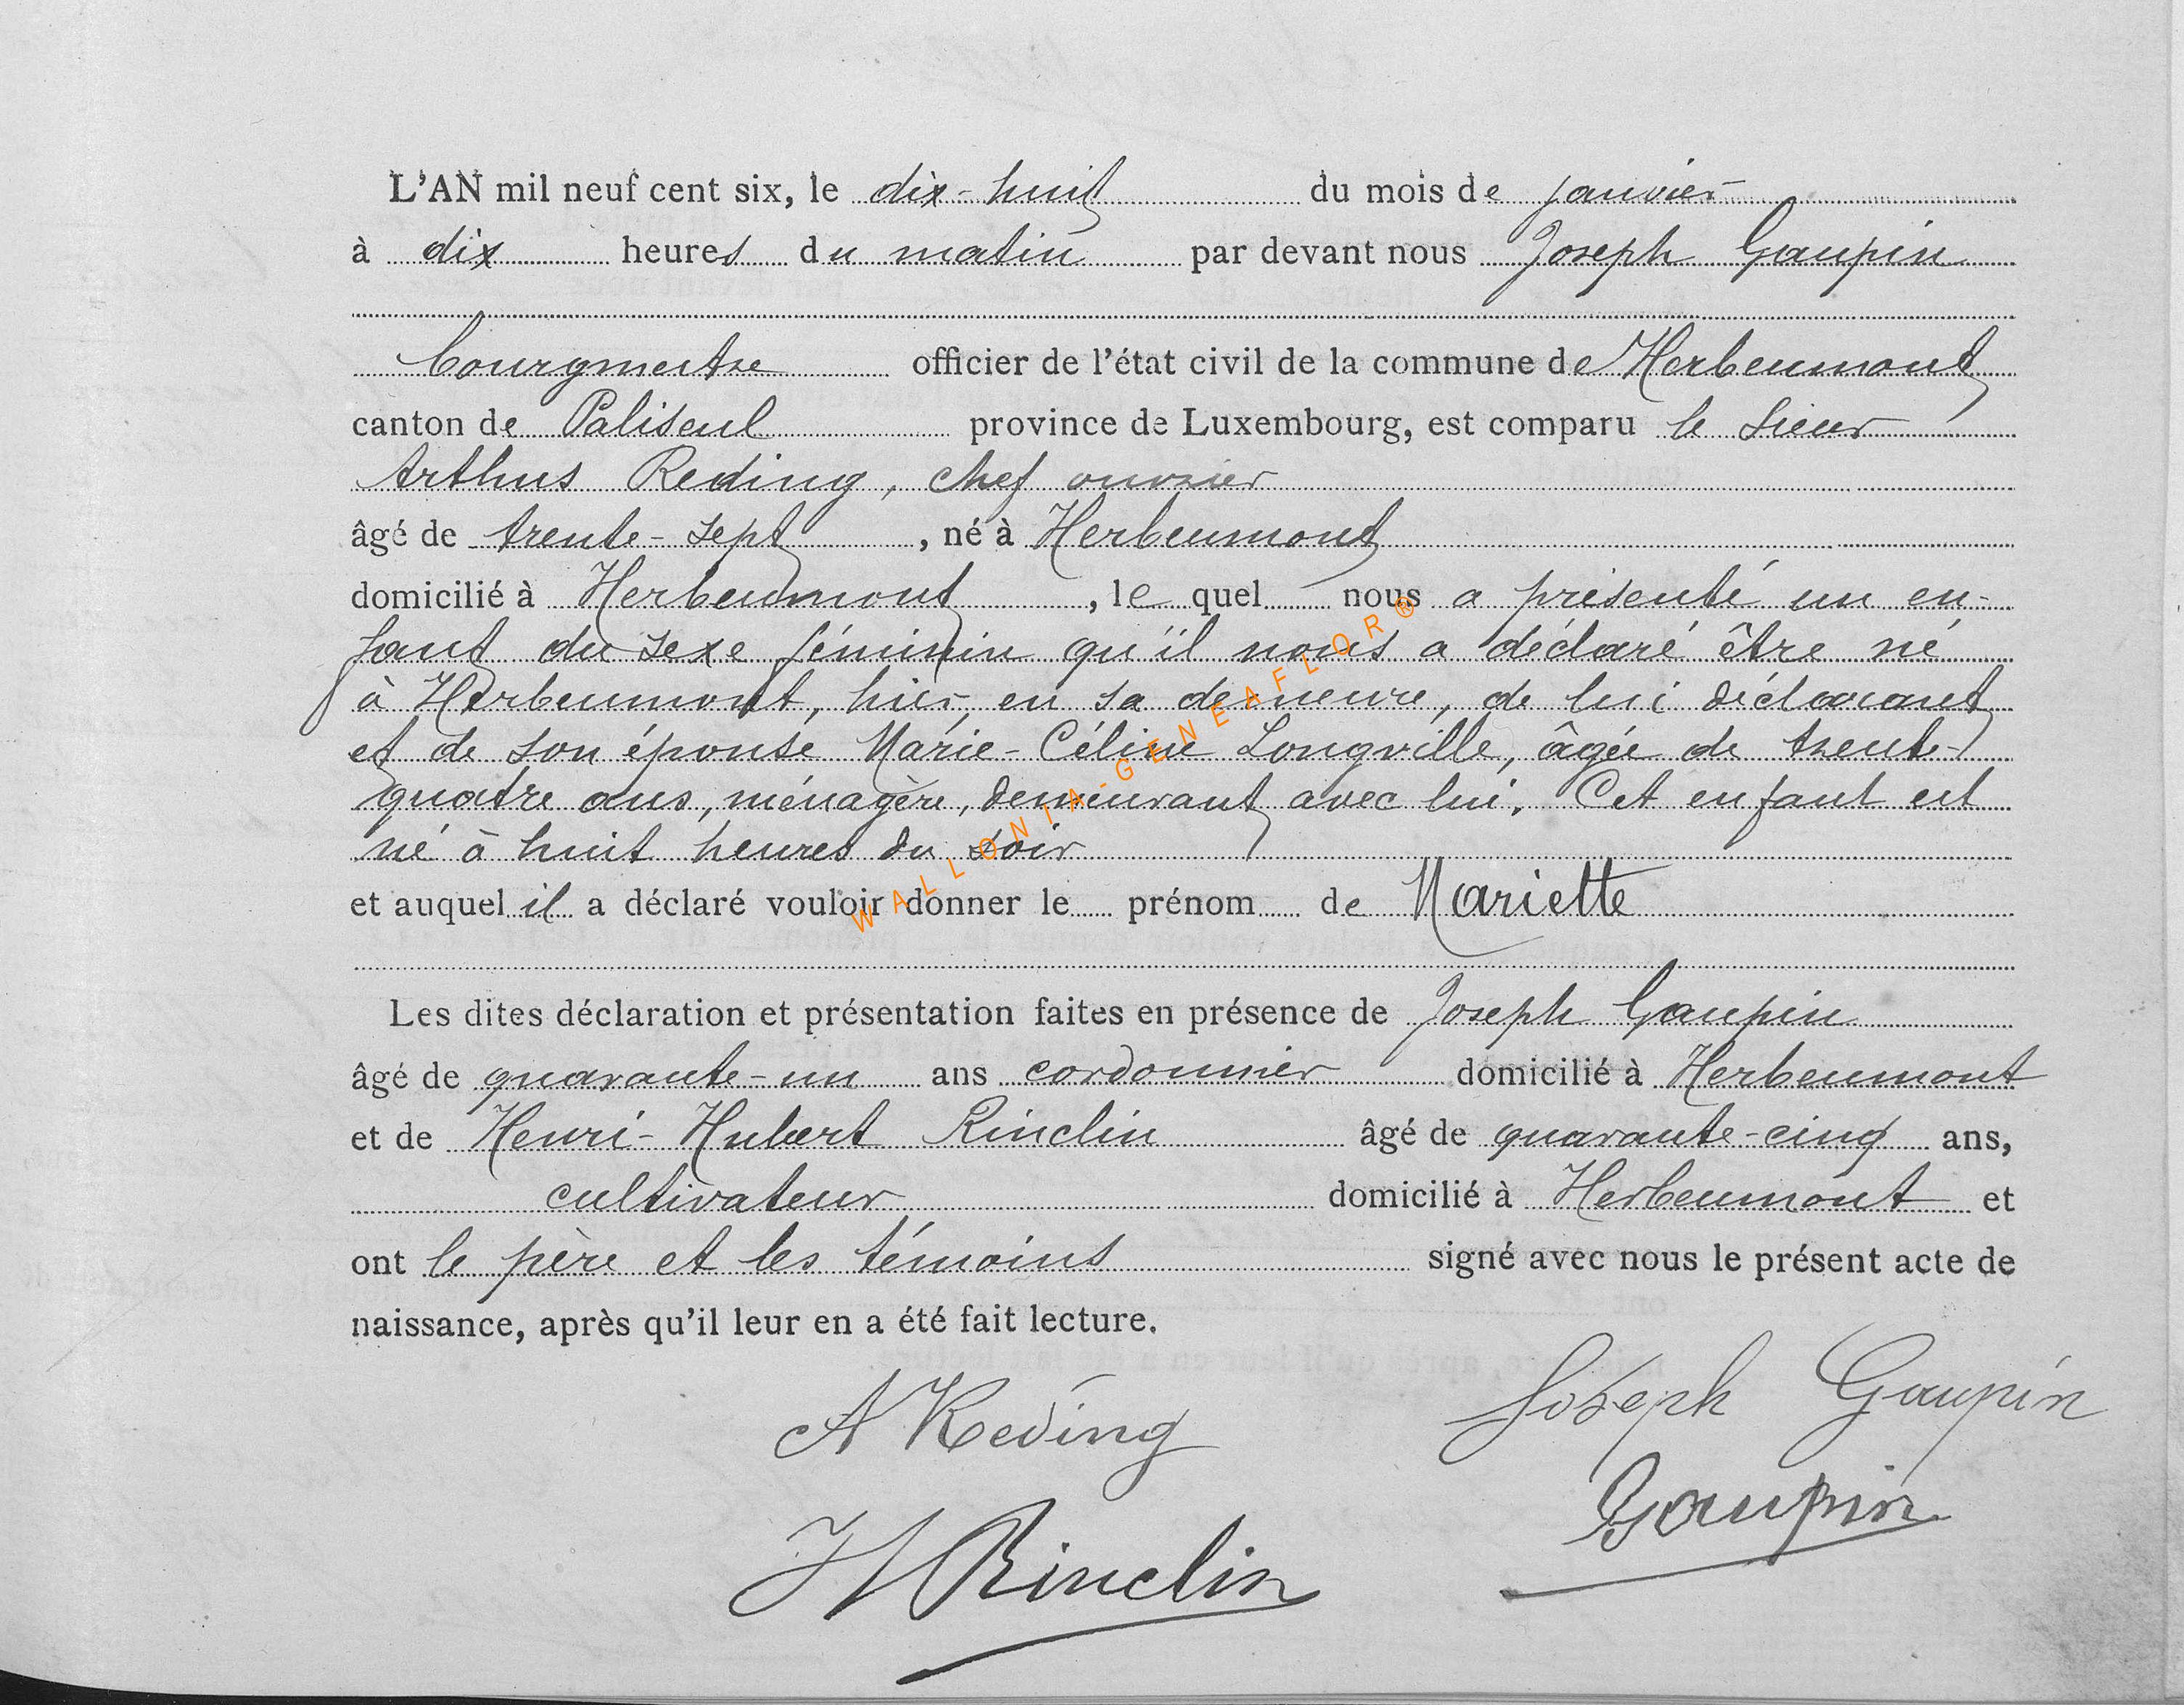 L'AN mil neuf cent six, le dix-huit du mois de janvier
à dix heures du matin par devant nous Joseph Gaupin
bourgmestre officier de l'état civil de la commune de Herbeumont
canton de Paliseul province de Luxembourg, est comparu le sieur
Arthur Reding, chef ouvrier
âgé de trente-sept, né à Herbeumont
domicilié à Herbeumont, lequel nous a présenté un en-
fant du sexe féminin qu'il nous a déclaré être né
à Herbeumont, hier, en sa demeure, de lui déclarant
et de son épouse Marie-Céline Longville, âgée de trente-
quatre ans, ménagère, demeurant avec lui. Cet enfant est
né à huit heures du soir
et auquel il a déclaré vouloir donner le prénom de Mariette
Les dites déclaration et présentation faites en présence de Joseph Gaupin
âgé de quarante-un ans cordonnier domicilié à Herbeumont
et de Henri-Hubert Rinclin âgé de quarante-cinq ans,
cultivateur domicilié à Herbeumont et
ont le père et les témoins signé avec nous le présent acte de
naissance, après qu'il leur en a été fait lecture.
A Reding Joseph Gaupin
H Rinclin Gaupin
WALLONIA-GENEAFLOR®